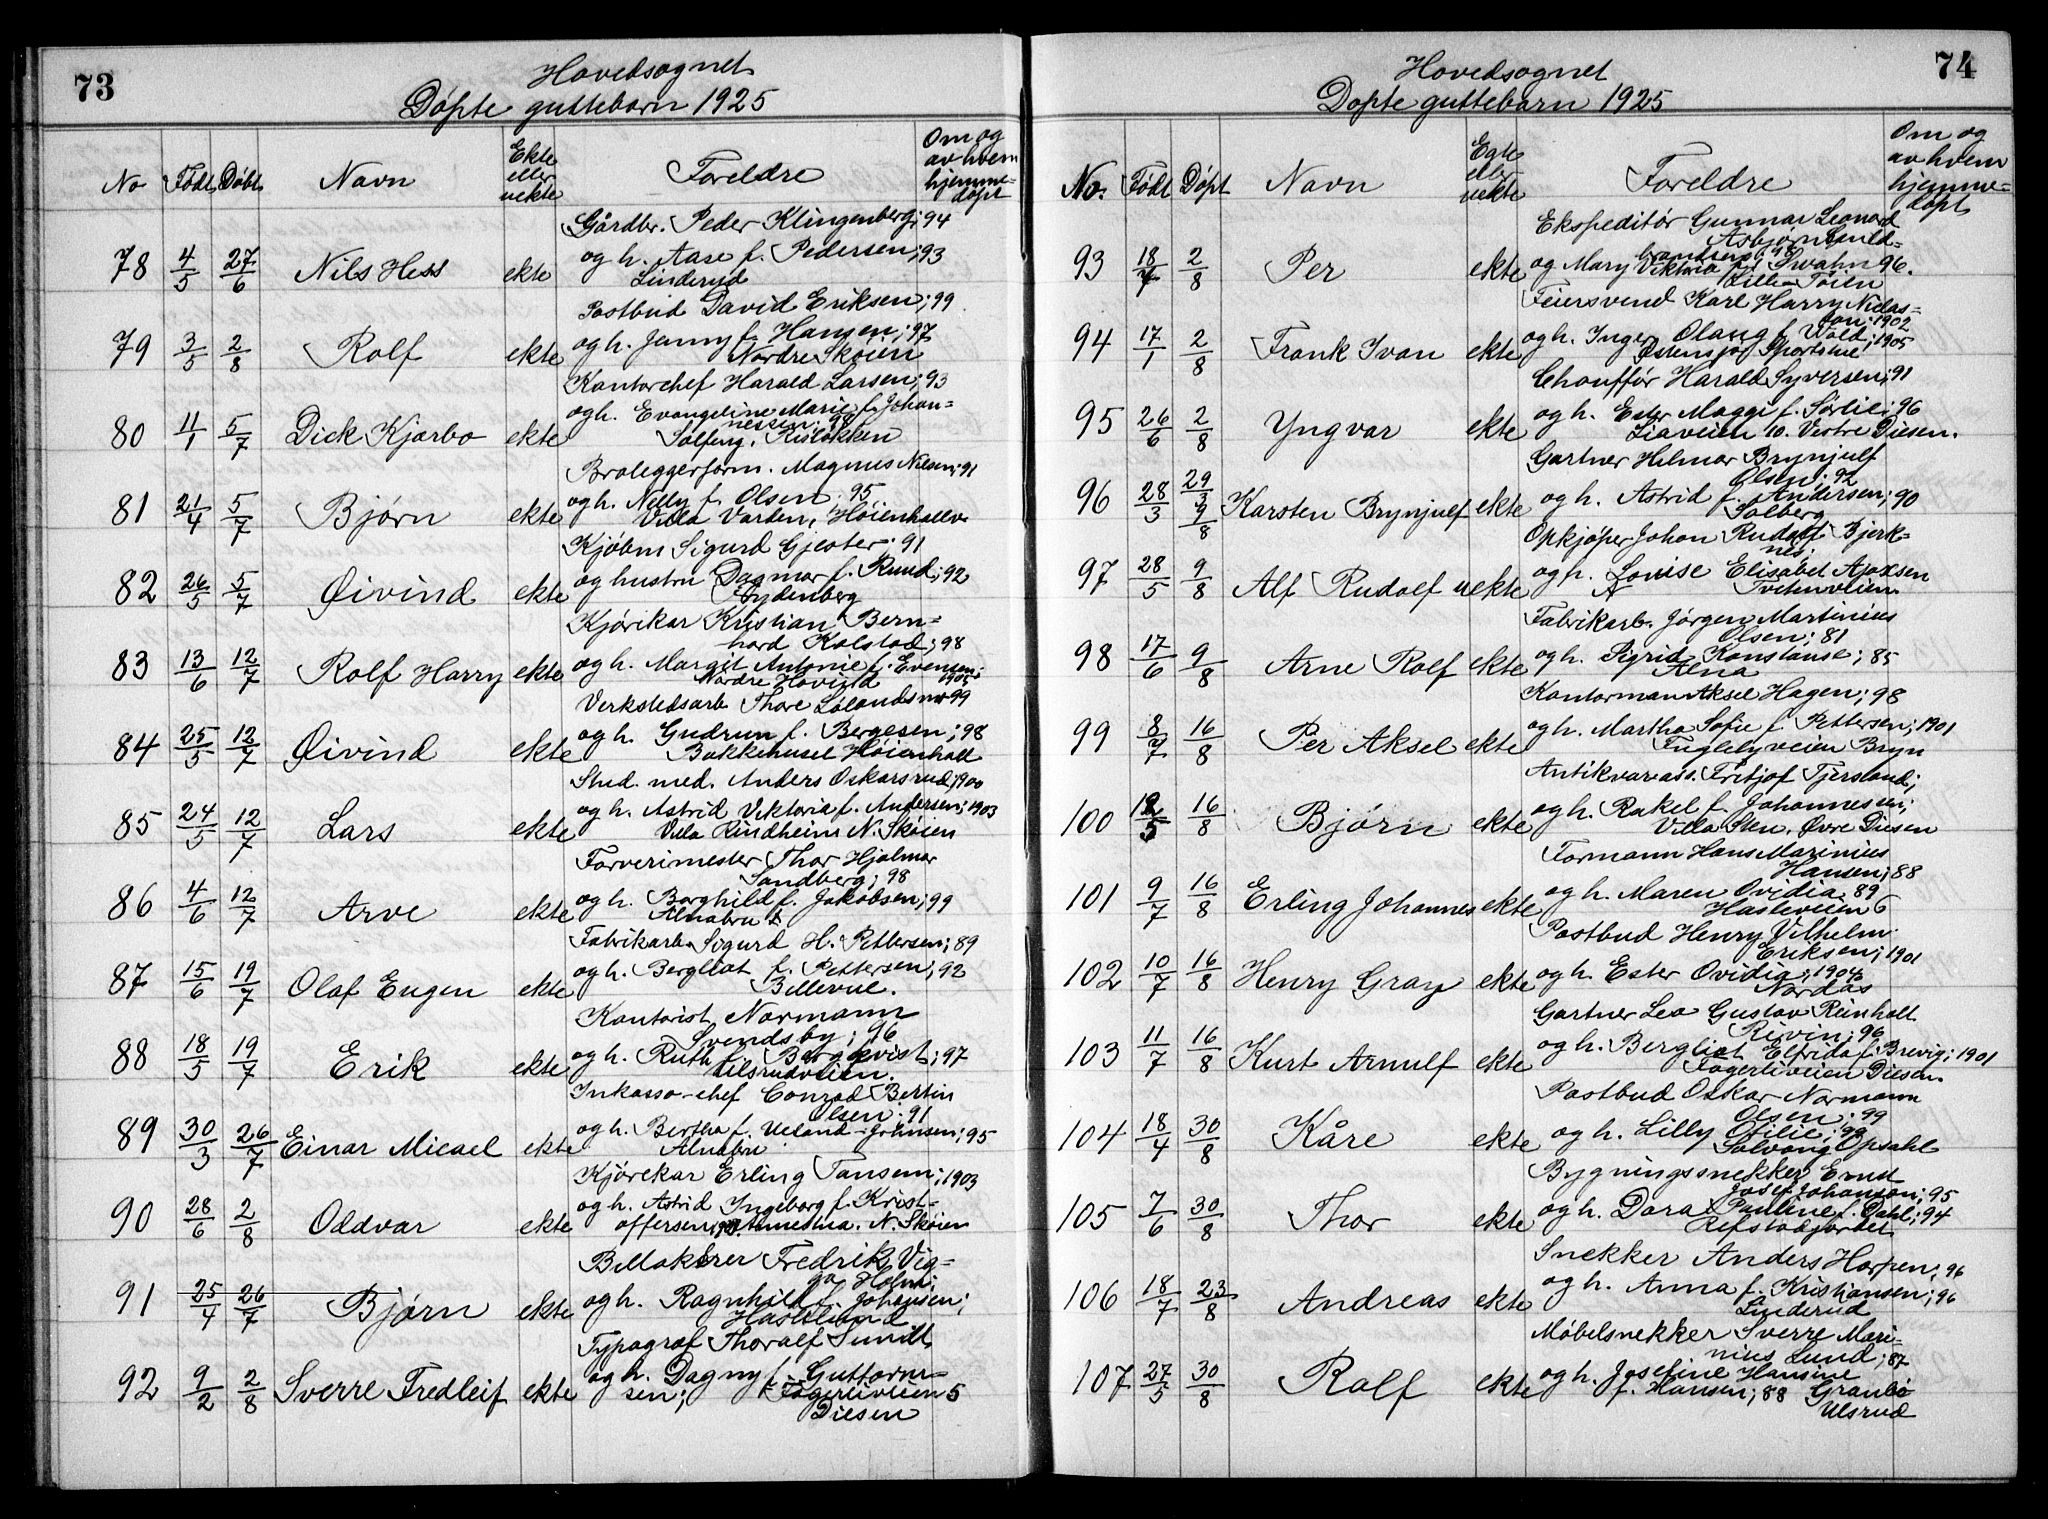 73
Hovedsognet
Døpte guttebarn 1925
No Født Døbt Navn Ekte eller uekte Foreldre Om og av hvem hjemme-døpt
Gårdbr. Peder Klingenberg; 94
78 4/5 27/6 Nils Hess ekte og h. Aase f. Pedersen; 93
Linderud
Postbud David Eriksen; 99
79 3/5 2/8 Rolf ekte og h. Jenny f. Hansen; 97
Nordre Skøien
Kontorchef Harald Larsen; 93
80 4/1 5/7 Dick Kjørbo ekte og h. Evangeline Marie f. Johan-
nessen; 98
Solfeng, Risløkken
Broleggerform. Magnus Nilsen; 91
81 21/4 5/7 Bjørn ekte og h. Nelly f. Olsen; 95
Villa Varden, Høienhallv.
Kjøbm Sigurd Gjester; 91
82 26/5 5/7 Øivind ekte og hustru Dagmar f. Ruud; 92
Frydenberg
Kjørekar Kristian Bern-
hard Kolstad; 98
83 13/6 12/7 Rolf Harry ekte og h. Margit Antonie f. Evensen;
Nordre Hovind 1905
Verkstedsarb Thore Lølandsmo 99
84 25/5 12/7 Øivind ekte og h. Gudrun f. Bergesen; 98
Bakkehusel Høienhald
Stud. med. Anders Oskarsrud; 1900
85 24/5 12/7 Lars ekte og h. Astrid Viktoria f. Andersen; 1903
Villa Lindheim N. Skøien
Farverimester Thor Hjalmar
Sandberg; 98
86 4/6 12/7 Arve ekte og h. Borghild f. Jakobsen; 99
Alnabru
Fabrikarb. Sigurd H. Pettersen; 89
87 15/6 19/7 Olaf Eugen ekte og h. Bergliot f. Pettersen; 92
Bellevue.
Kontorist Normann
Svendsby; 96
88 18/5 19/7 Erik ekte og h. Ruth f. Bergkvist; 97
Ulsrudveien.
Inkasso-chef Conrad Bertin
Olsen; 91
89 30/3 26/7 Einar Micael ekte og h. Bertha f. Ueland-Johnsen; 95
Alnabru
Kjørekar Erling Tansem; 1903
90 28/6 2/8 Oddvar ekte og h. Astrid Ingeborg f. Krist-
offersen; N. Skøien
Filletakker Fredrik Vig-
go Holm;
91 25/4 26/7 Bjørn ekte og h. Ragnhild f. Johansen;
Haslelund
Typograf Thoralf Sundt
92 9/2 2/8 Sverre Fredleif ekte og h. Dagny f. Guttorm-
sen; Fagerliveien 5
Diesen
74
Hovedsognet
Døpte guttebarn 1925
No. Født Døpt Navn Egte eller uekte Foreldre Om og av hvem hjemme-døpt
Ekspeditør Gunnar Leonard
Asbjørn Guld-
brandsen; 98
93 18/7 2/8 Per ekte og Mary Viktoria f. Swahn 96.
Lille-Tøien
Feiersvend Karl Harry Niclas-
son; 1902
94 17/1 2/8 Frank Ivan ekte og h. Inger Olaug f. Wold; 1905
Østensjø Sportshue
Chauffør Harald Syversen; 91
95 26/6 2/8 Yngvar ekte og h. Ester Maggi f. Sørlie; 96
Liaveien 10. Vestre Diesen.
Gartner Hilmar Brynjulf
Olsen; 92
96 28/3 29/3 9/8 Karsten Brynjulf ekte og h. Astrid f. Andersen; 90
Solberg
Opkjøper Johan Rudolf Bjerk-
nes;
97 28/5 9/8 Alf Rudolf uekte og h. Lovise Elisabet Ajaxsen
Tvetenveien
Fabrikarb. Jørgen Martinius
Olsen; 81
98 17/6 9/8 Arne Rolf ekte og h. Sigrid Konstanse; 85
Alna
Kontorman Aksel Hagen; 98
99 8/7 16/8 Per Aksel ekte og h. Martha Sofie f. Pettersen; 1901
Fuglelyveien Bryn
Antikvarass. Fritjof Tjersland;
100 12/5 16/8 Bjørn ekte og h. Rakel f. Johannesen;
Villa Sten. Øvre Diesen
Formann Hans Marinius
Hansen; 88
101 9/7 16/8 Erling Johannes ekte og h. Maren Ovidia 89
Hasleveien 6
Postbud Henry Vilhelm
Eriksen; 1901
102 10/7 16/8 Henry Gray ekte og h. Ester Ovidia; 1904
Nordås
Gartner Leo Gustav Reinholt
Rivin; 96
103 11/7 16/8 Kurt Arnulf ekte og h. Bergliot Elfrida f. Brevig; 1901
Fagerliveien Diesen.
Postbud Oskar Normann
Olsen; 99
104 18/4 30/8 Kåre ekte og h. Lilly Otilie; 99
Solvang, Opsahl
Bygningssnekker Ernst
Josef Johanson; 95
105 7/6 30/8 Thor ekte og h. Dora Pauline f. Dahl; 94
Refstadjordet
Snekker Anders Horpen; 96
106 18/7 23/8 Andreas ekte og h. Anna f. Kristiansen; 96
Linderud
Møbelsnekker Sverre Mari-
nius Lund; 87
107 27/5 30/8 Rolf ekte og h. Josefine Hansine
f. Hansen; 88 Granbo
Ulsrud